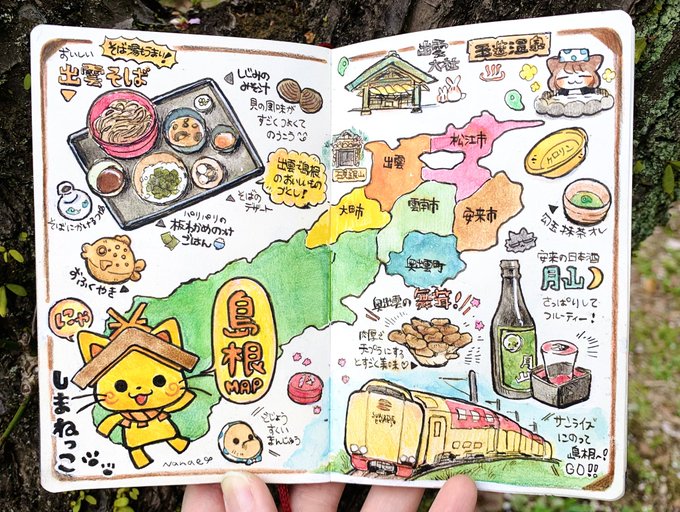 おいしい
そば湯もうまい!
出雲そば
しじみの
みそ汁
貝の風味が
すごくつよくて
のうこう
出雲・島根
のおいしいもの
づくし!
そばの
デザート
パリパリの
板わかめのオ
ごはん
そばにかけるつゆ
おふくやき
にゃ
しまねっこ
島根
MAP
どじょう
すくい
まんじゅう
Nanae
出雲
大社
玉造温泉
松江市
出雲
大田市
雲南市
安来市
奥出雲町
ケロリン
勾玉抹茶オレ
安来の日本酒
月山
さっぱりして
フルーティー!
奥出雲の舞茸!!
肉厚で
天プラにする
とすごく美味
月山
SUNRISE
EXPRESS
サンライズ
にのって
島根へ!
GO!!